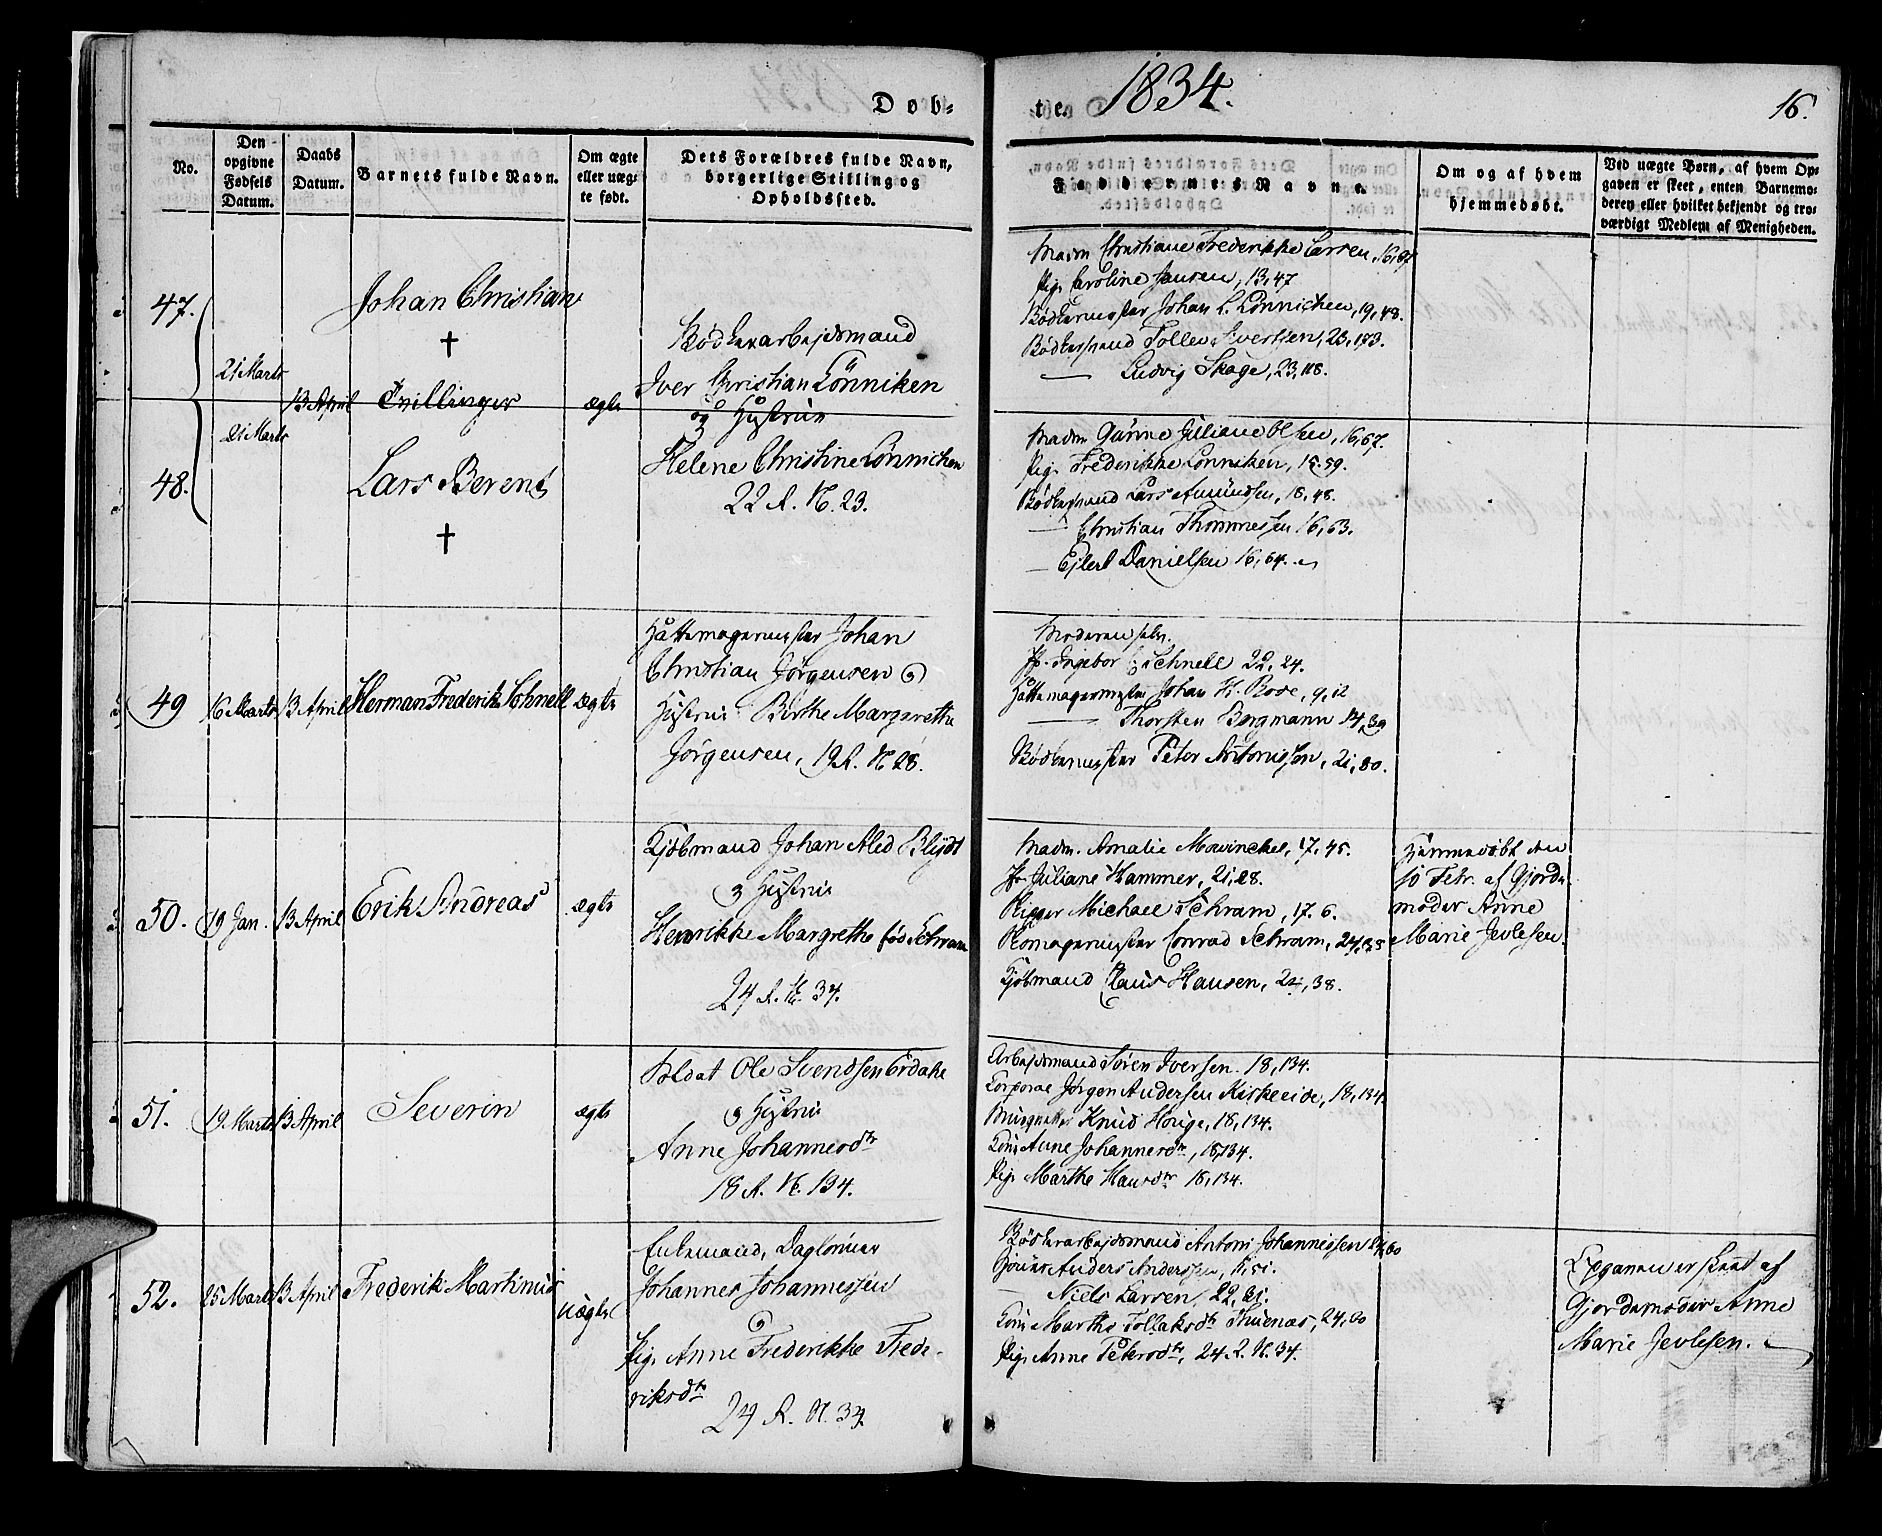 Døb-
te. 1834.
16.
No.
Den
opgivne
Fødsels
Datum.
Daabs
Datum.
Barnets fulde Navn.
Om ægte
eller uæg-
te født.
Dets Forældres fulde Navn,
borgerlige Stilling og
Opholdssted.
Faddernes Navne.
Om og af hvem
hjemmedøbt.
Ved uægte Børn, af hvem Op-
gaven er skeet, enten Barnemo-
deren eller hvilket bekjendt og tro-
værdigt Medlem af Menigheden.
47.
21 Marts
Johan Christian
†
13 April
Tvillinger
ægte
48.
21 Marts
Lars Berent
†
Bødkerarbejdsmand
Iver Christian Lønniken
og Hustrue
Helene Christine Lønnichen
22 R. N. 23.
Madm Christiane Frederikke Larsen, 16,67
Pig. Caroline Jansen, 13,47
Bødkermester Johan L. Lønnichen, 19,48.
Bødkersvend Tollev Ivertsen, 23,183.
— Ludvig Skage, 23,118.
Madm Juliane Olsen, 16,67.
Pig. Frederikke Lønniken, 15.59.
Bødkersvend Lars Amundsen, 18,48.
— Christian Thommesen 16,63.
— Ejlert Danielsen 16,64.
49
16 Marts
13 April
Herman Frederik Schnell
ægte
Hattemagermester Johan
Christian Jørgensen og
Hustrue Birthe Margrethe
Jørgensen, 19 R. N 28.
Moderen selv.
Jfr. Ingebor Schnell 22,24.
Hattemagermester Johan H. Bose, 9,12
— Thorsten Bergmann 14,39
Bødkermester Peter Antonissen, 21,80.
50.
19 Jan.
13 April
Erik Andreas
ægte
Kjøbmand Johan Aled Blydt
og Hustrue
Henrikke Margrethe fød Schram
24 R. N. 34.
Madm. Amalie Mowinckel, 17,45.
Jfr Juliane Hammer, 21,28.
Rigger Michael Schram, 17.6.
Conrad Schram, 24,35
Kjøbmand Claus Hansen, 24,38.
Hjemmedøbt den
10 Febr. af Gjorde-
moder Anne
Marie Jevlesen.
51.
19 Marts
13 April
Severin
ægte
Soldat Ole Svendsen Erdahl
og Hustrue
Anne Johannesdtr
18 R. N. 134.
Arbejdsmand Søren Iversen. 18,134.
Corporal Jørgen Andersen Kirkeeide, 18,134.
Musquetter Knud Houge, 18,134.
Kone Anne Johannesdtr, 18,134.
Pig. Marthe Hansdtr 18,134.
52.
25 Marts
13 April
Frederik Martinus
Uægte
Enkemand, Daglønner
Johannes Johannessen
og
Pig. Anne Frederikke Frede-
riksdtr
24 R. N. 34.
Bødkerarbejdsmand Antoni Johannessen 24,60
Anders Anderssen, 15,51.
— Niels Larsen, 22,61.
Kone Marthe Tollaksdtr Thuenæs, 24,60
Pig. Anne Petersdtr, 24 R. N. 34.
Opgaven er skeet af
Gjordemoder Anne
Marie Jevlesen.